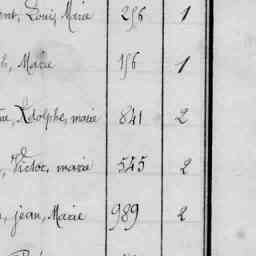 Louis, Marie 256 1
Marie 156 1
Adolphe, marie 841 2
Victor, marie 545 2
jean, Marie 989 2